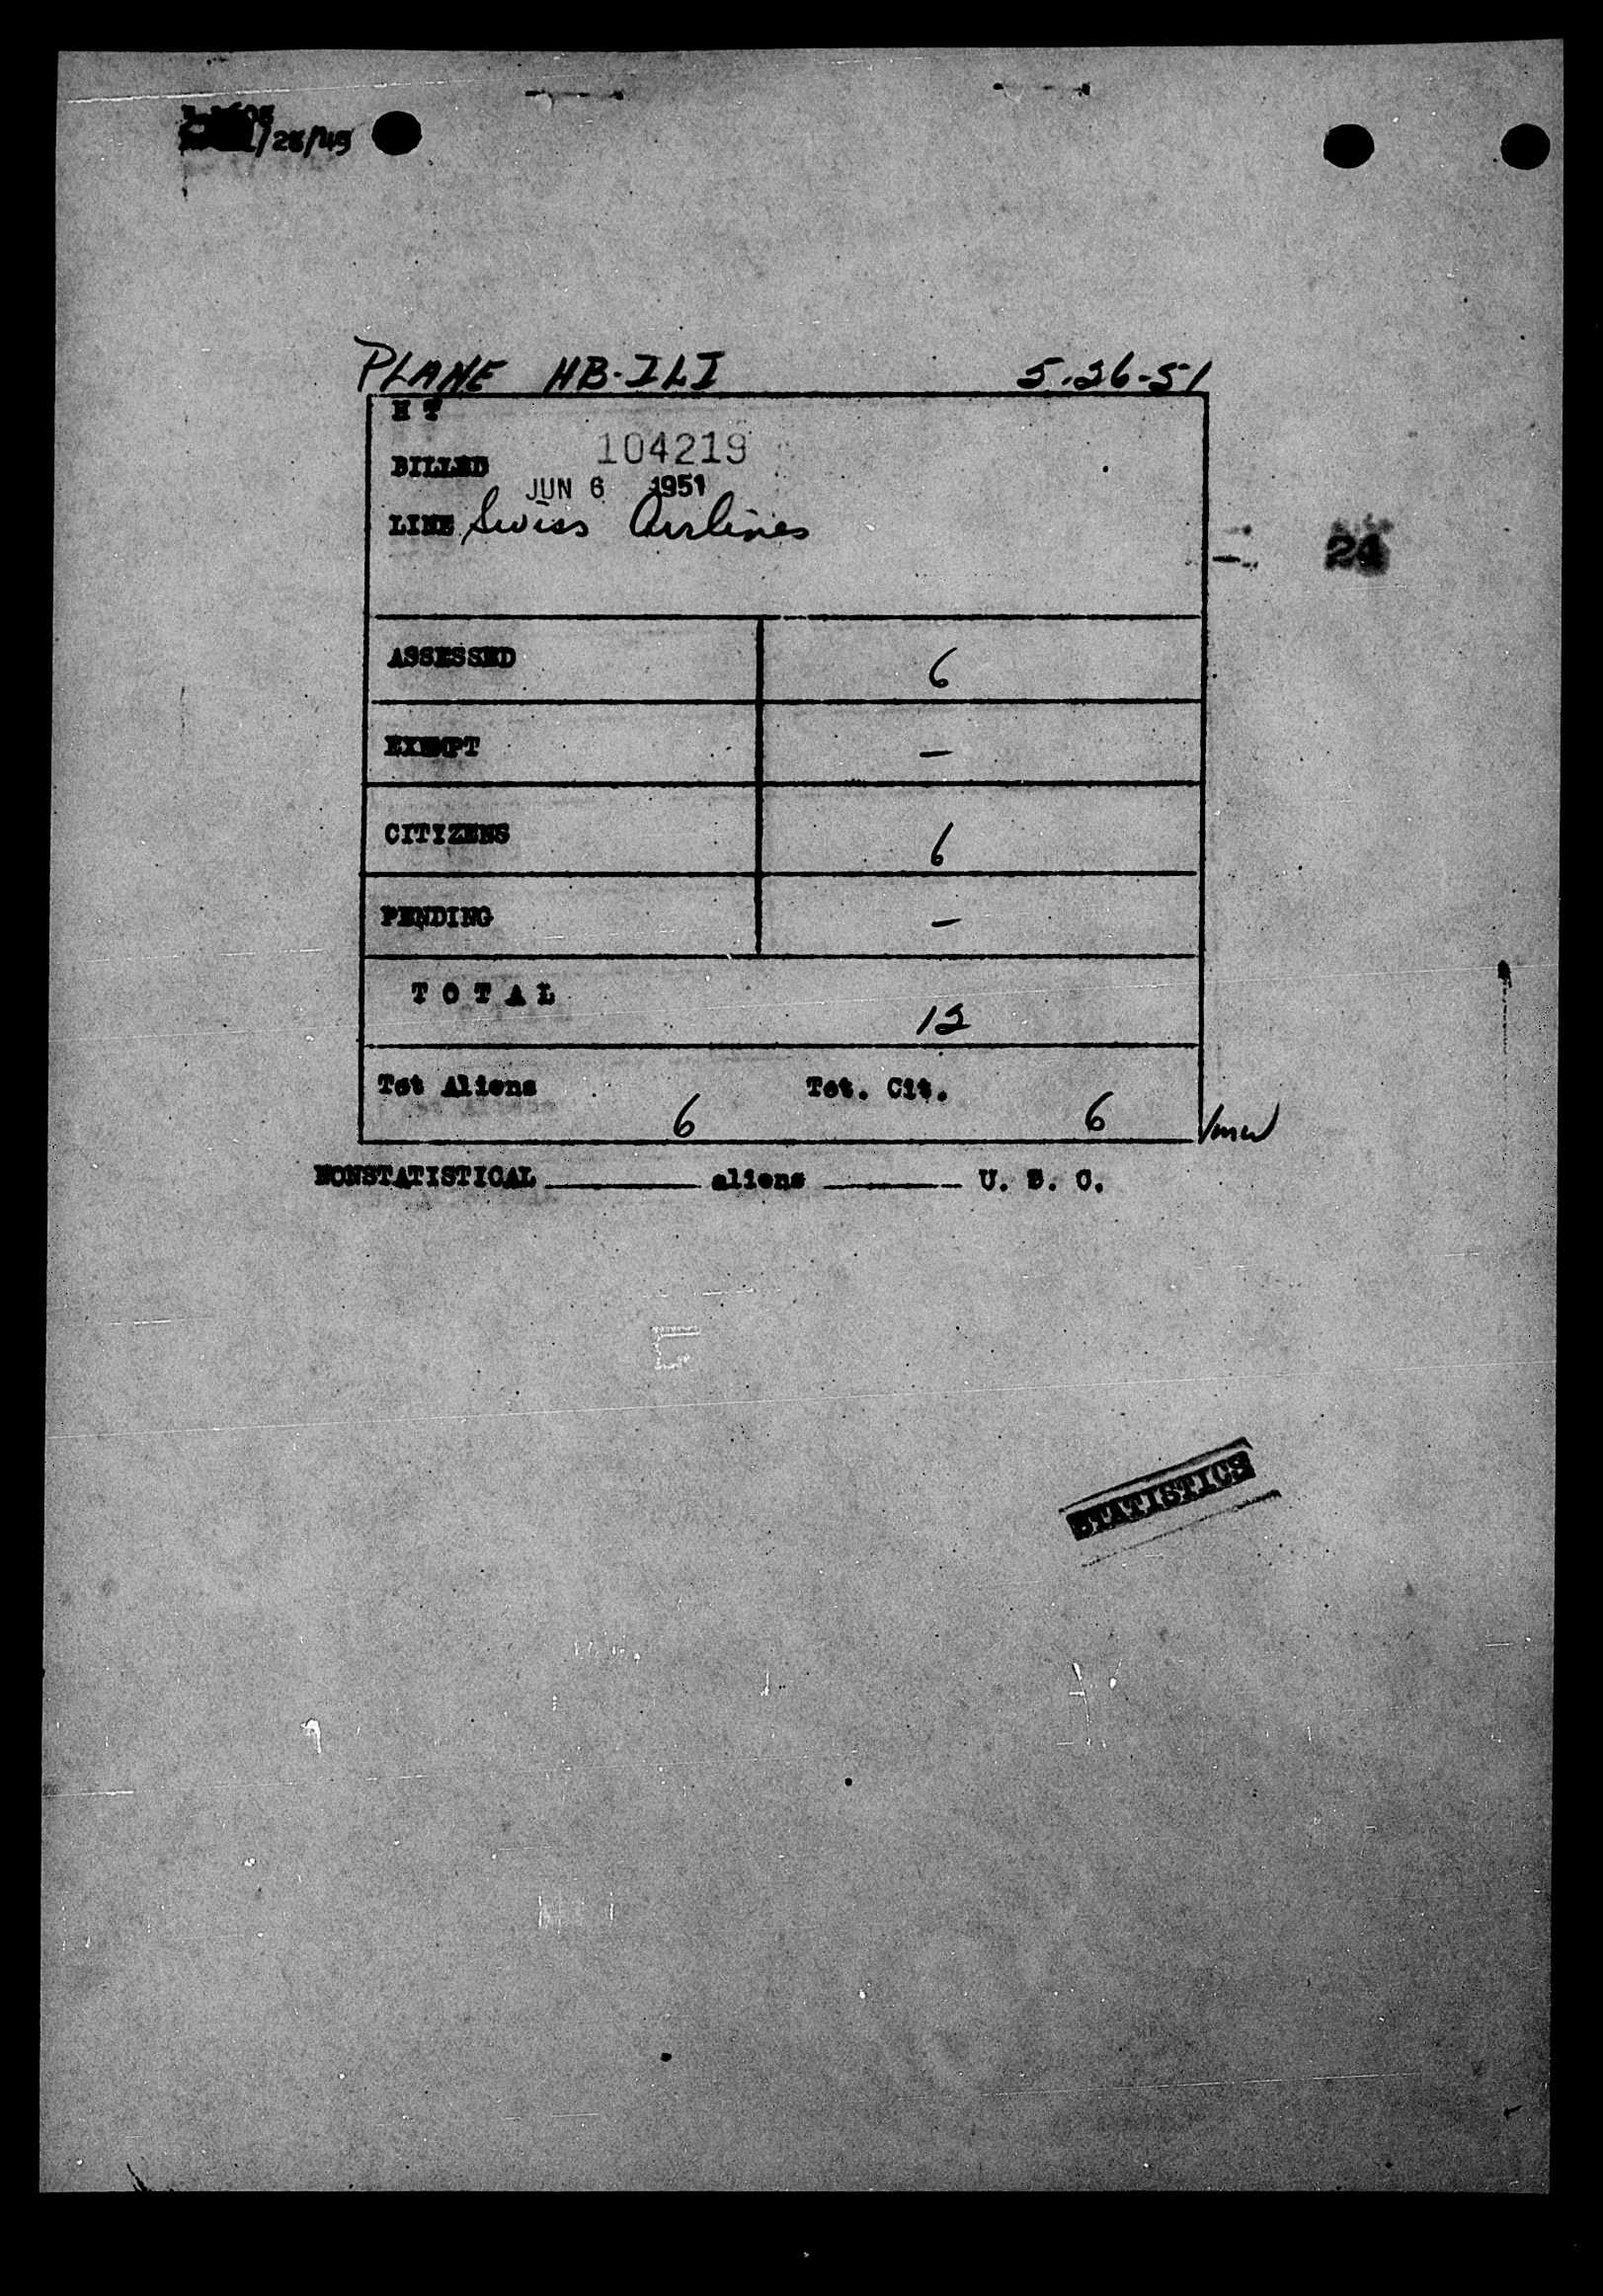 /28/49
PLANE HB-ILI 5-26-51
H T
BILLED 104219
JUN 6 1951
LINE Swiss Airlines
24
ASSESSED 6
EXEMPT –
CITIZENS 6
PENDING –
T O T A L 12
Tot Aliens 6 Tot. Cit. 6 /mw
NONSTATISTICAL ______ aliens ______ U. S. C.
STATISTICS